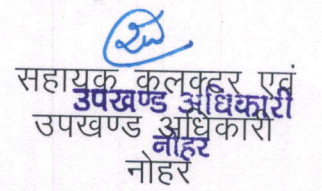 सहायक कलक्टर एवं
उपखण्ड अधिकारी
उपखण्ड अधिकारी
नोहर
नोहर